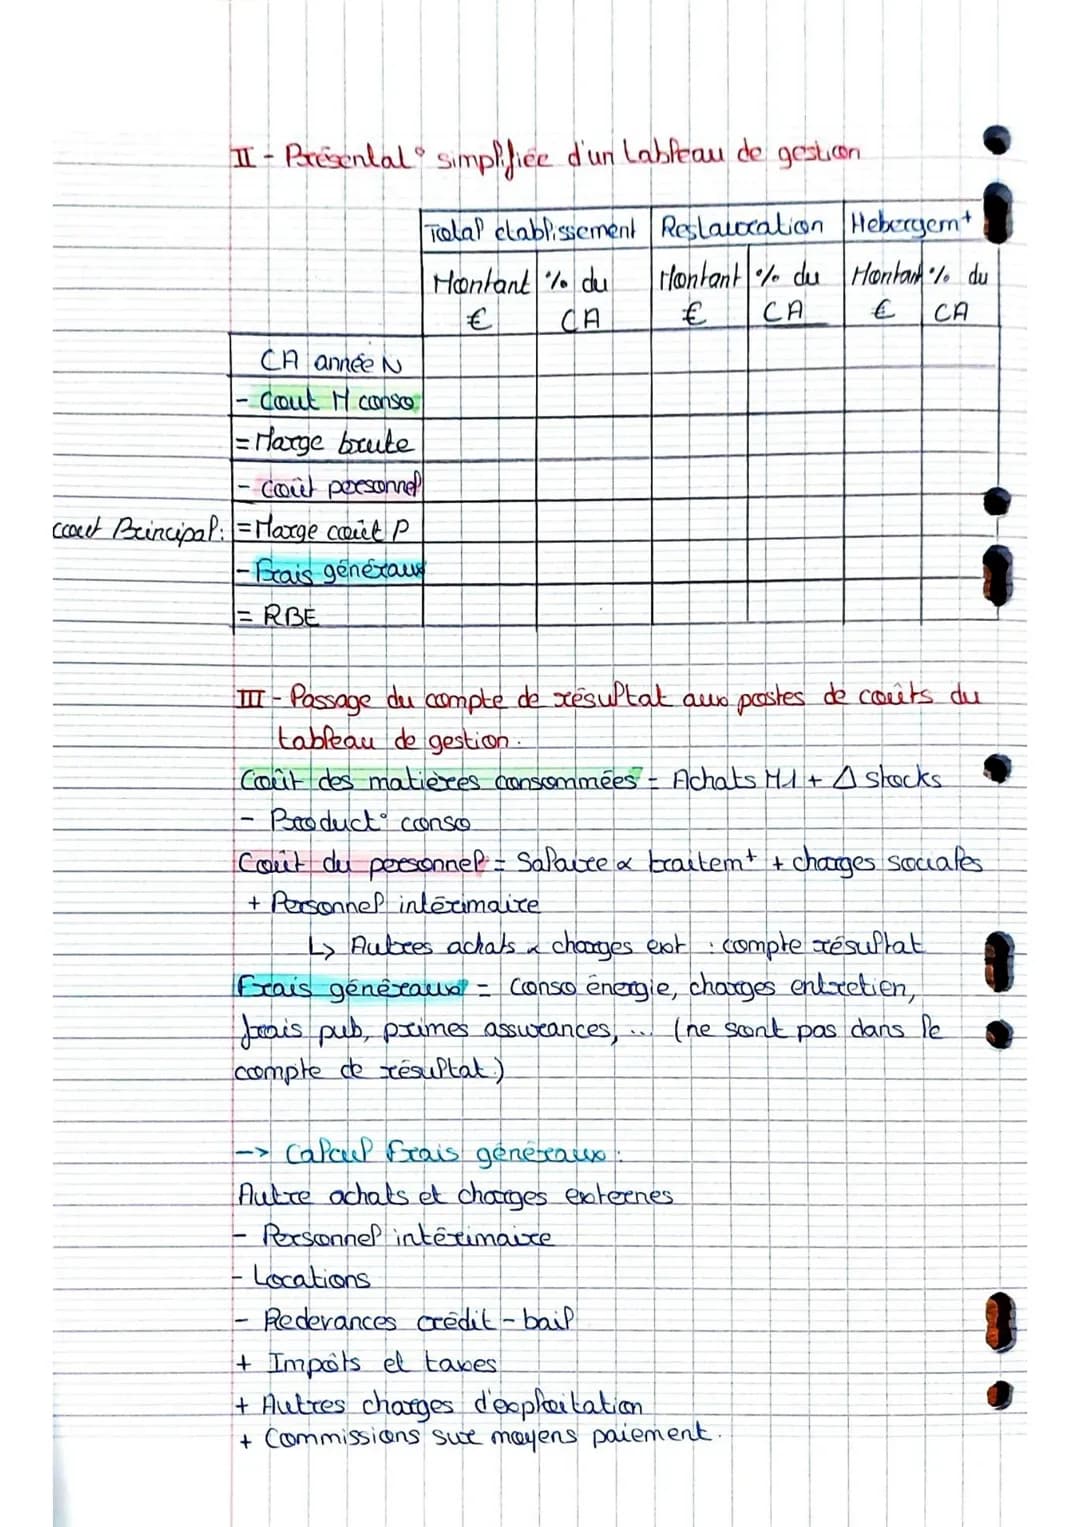 II - Présentat° simplifiée d'un tableau de gestion
Total établissement Restauration Hébergem+
Montant % du Montant % du Montant % du
€ CA € CA € CA
CA année N
- Cout M conso
= Marge brute
- Coût personnel
cout Principal: = Marge coût P
- Frais généraux
= RBE
III - Passage du compte de résultat aux postes de coûts du
tableau de gestion.
Coût des matières consommées = Achats M1 + Δ stocks
- Product° conso
Coût du personnel = Salaire & traitem+ + charges sociales
+ Personnel intérimaire
↳ Autres achats & charges ext : compte résultat
Frais généraux = Conso énergie, charges entretien,
frais pub, primes assurances, ... (ne sont pas dans le
compte de résultat.)
--> Calcul frais généraux:
Autre achats et charges externes
- Personnel intérimaire
- Locations
- Redevances crédit-bail
+ Impôts et taxes
+ Autres charges d'exploitation
+ Commissions sur moyens paiement.